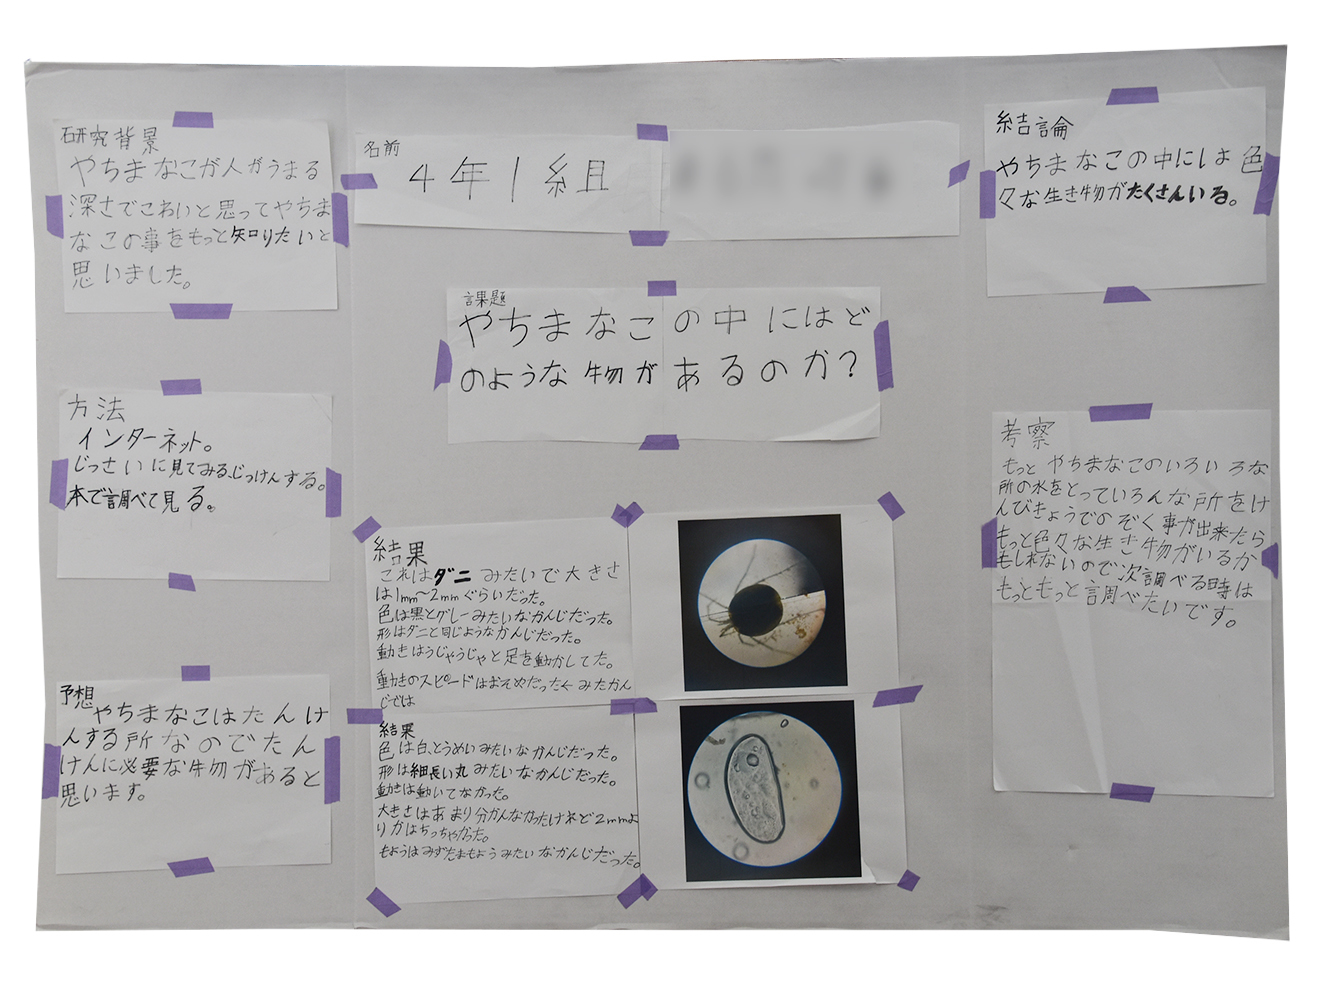 研究背景
やちまなこが人がうまる
深さでこわいと思ってやちま
なこの事をもっと知りたいと
思いました。
方法
インターネット。
じっさいに見てみる、じっけんする。
本で調べて見る。
予想
やちまなこはたんけ
んする所なのでたん
けんに必要な物があると
思います。
名前
4年1組
課題
やちまなこの中にはど
のような物があるのか?
結果
これはダニみたいで大きさ
は1mm〜2mmぐらいだった。
色は黒とグレーみたいなかんじだった。
形はダニと同じようなかんじだった。
動きはうじゃうじゃと足を動かしてた。
動きのスピードはおそめだったくみたかん
じでは
結果
色は白、とうめいみたいなかんじだった。
形は細長い丸みたいなかんじだった。
動きは動いてなかった。
大きさはあまり分かんなかったけれど2mmよ
りかはちっちゃかった。
もようはみずたまもようみたいなかんじだった。
結論
やちまなこの中には色
々な生き物がたくさんいる。
考察
もっとやちまなこのいろいろな
所の水をとっていろんな所をけ
んびきょうでのぞく事が出来たら
もっと色々な生き物がいるか
もしれないので次調べる時は
もっともっと調べたいです。